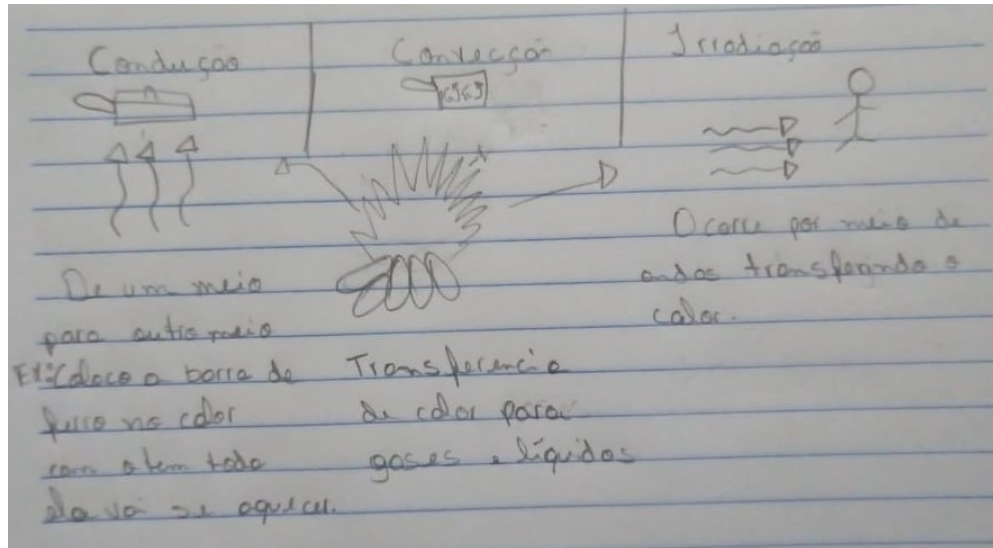 Condução
De um meio
para outro meio
EX: Coloco a barra de
ferro no calor
com o tem todo
ela va se aquecer.
Convecção
Transferencia
de calor para
gases e líquidos
Irradiação
Ocorre por meio de
ondas transferindo o
calor.